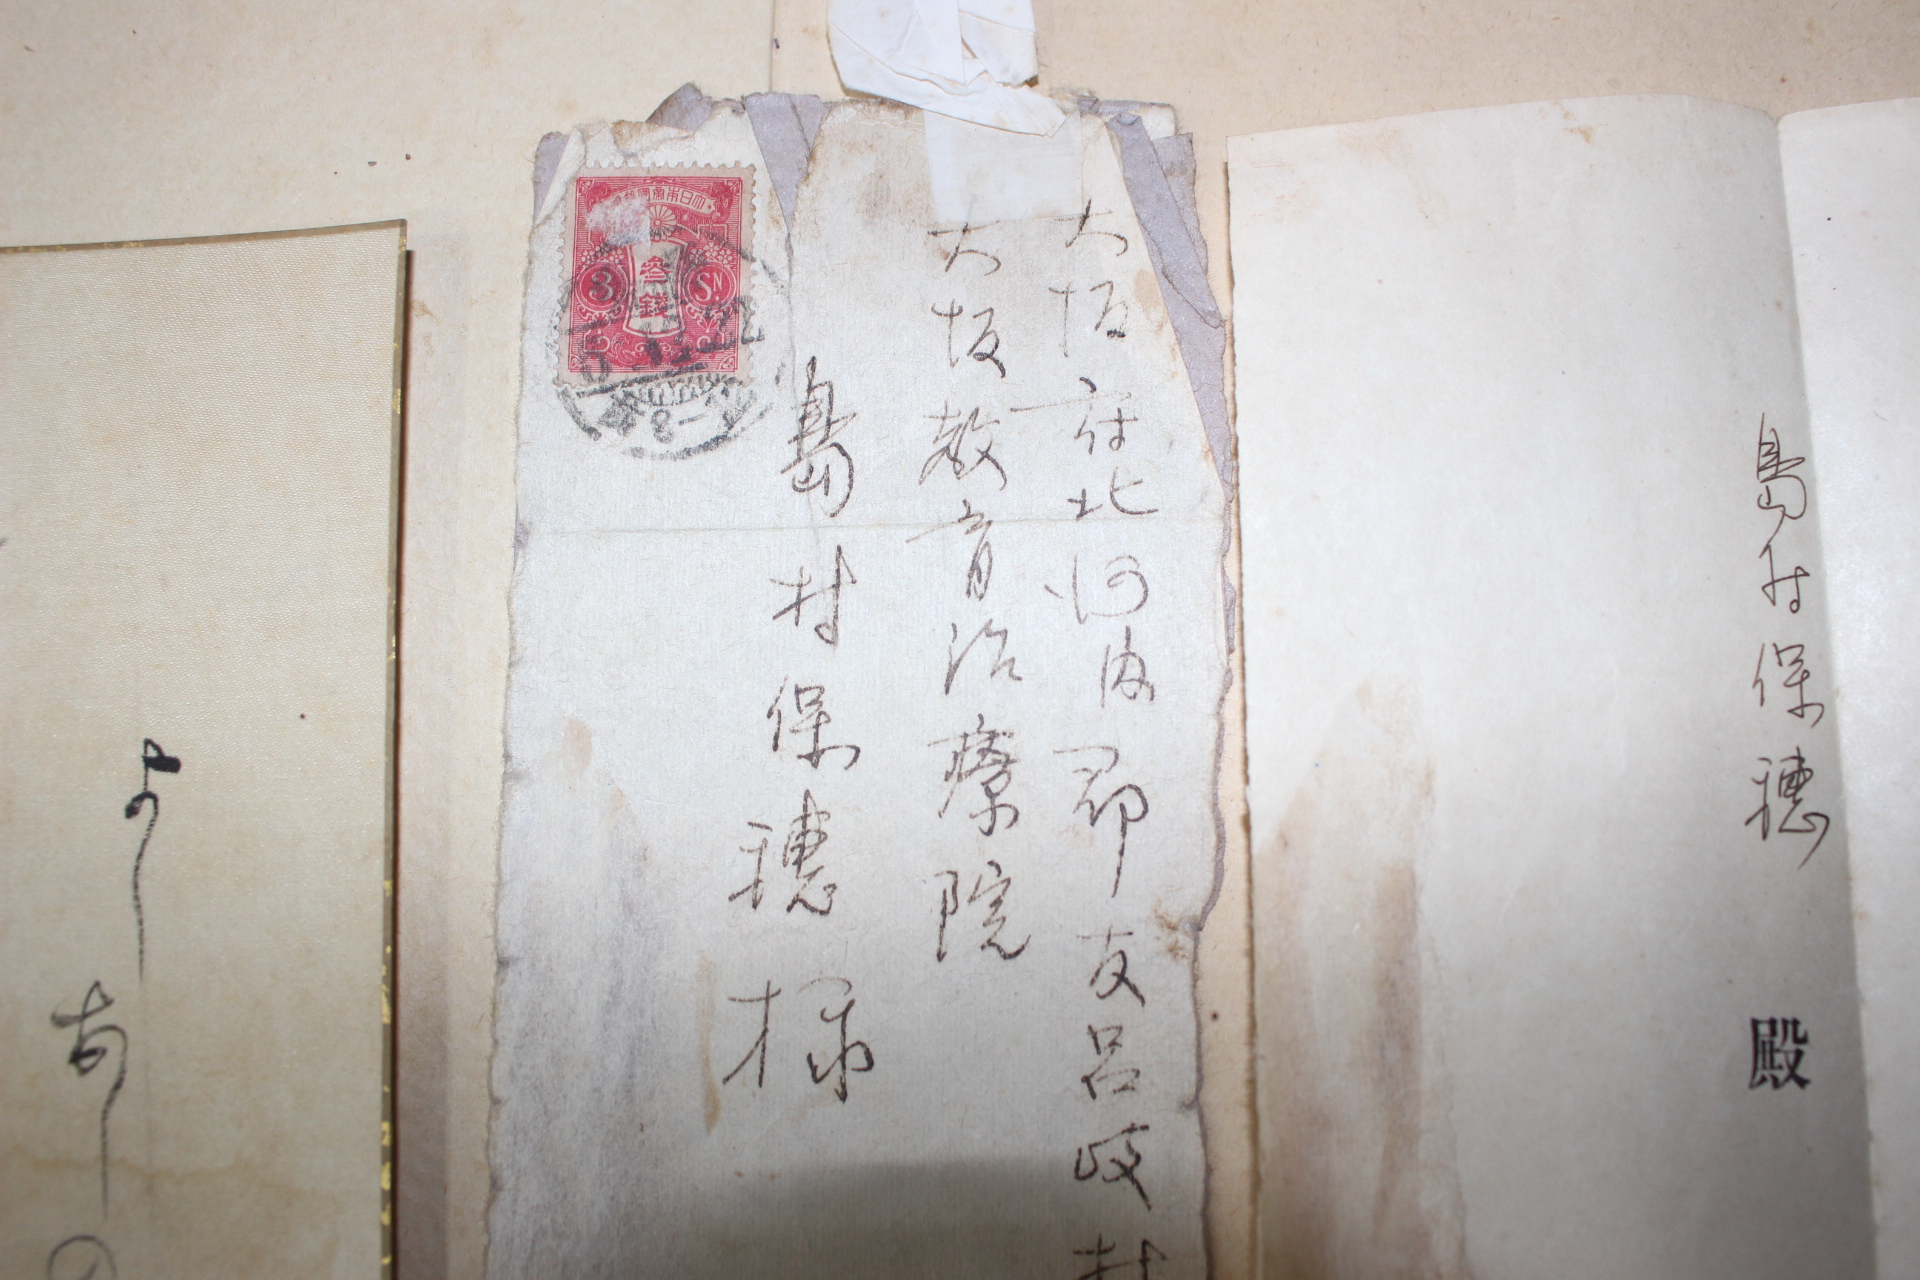 島村保穗 殿
大阪府北河内郡友呂岐村
大阪教育治療院
島村保穗様
大日本帝國郵便
3 参錢 SN
よ